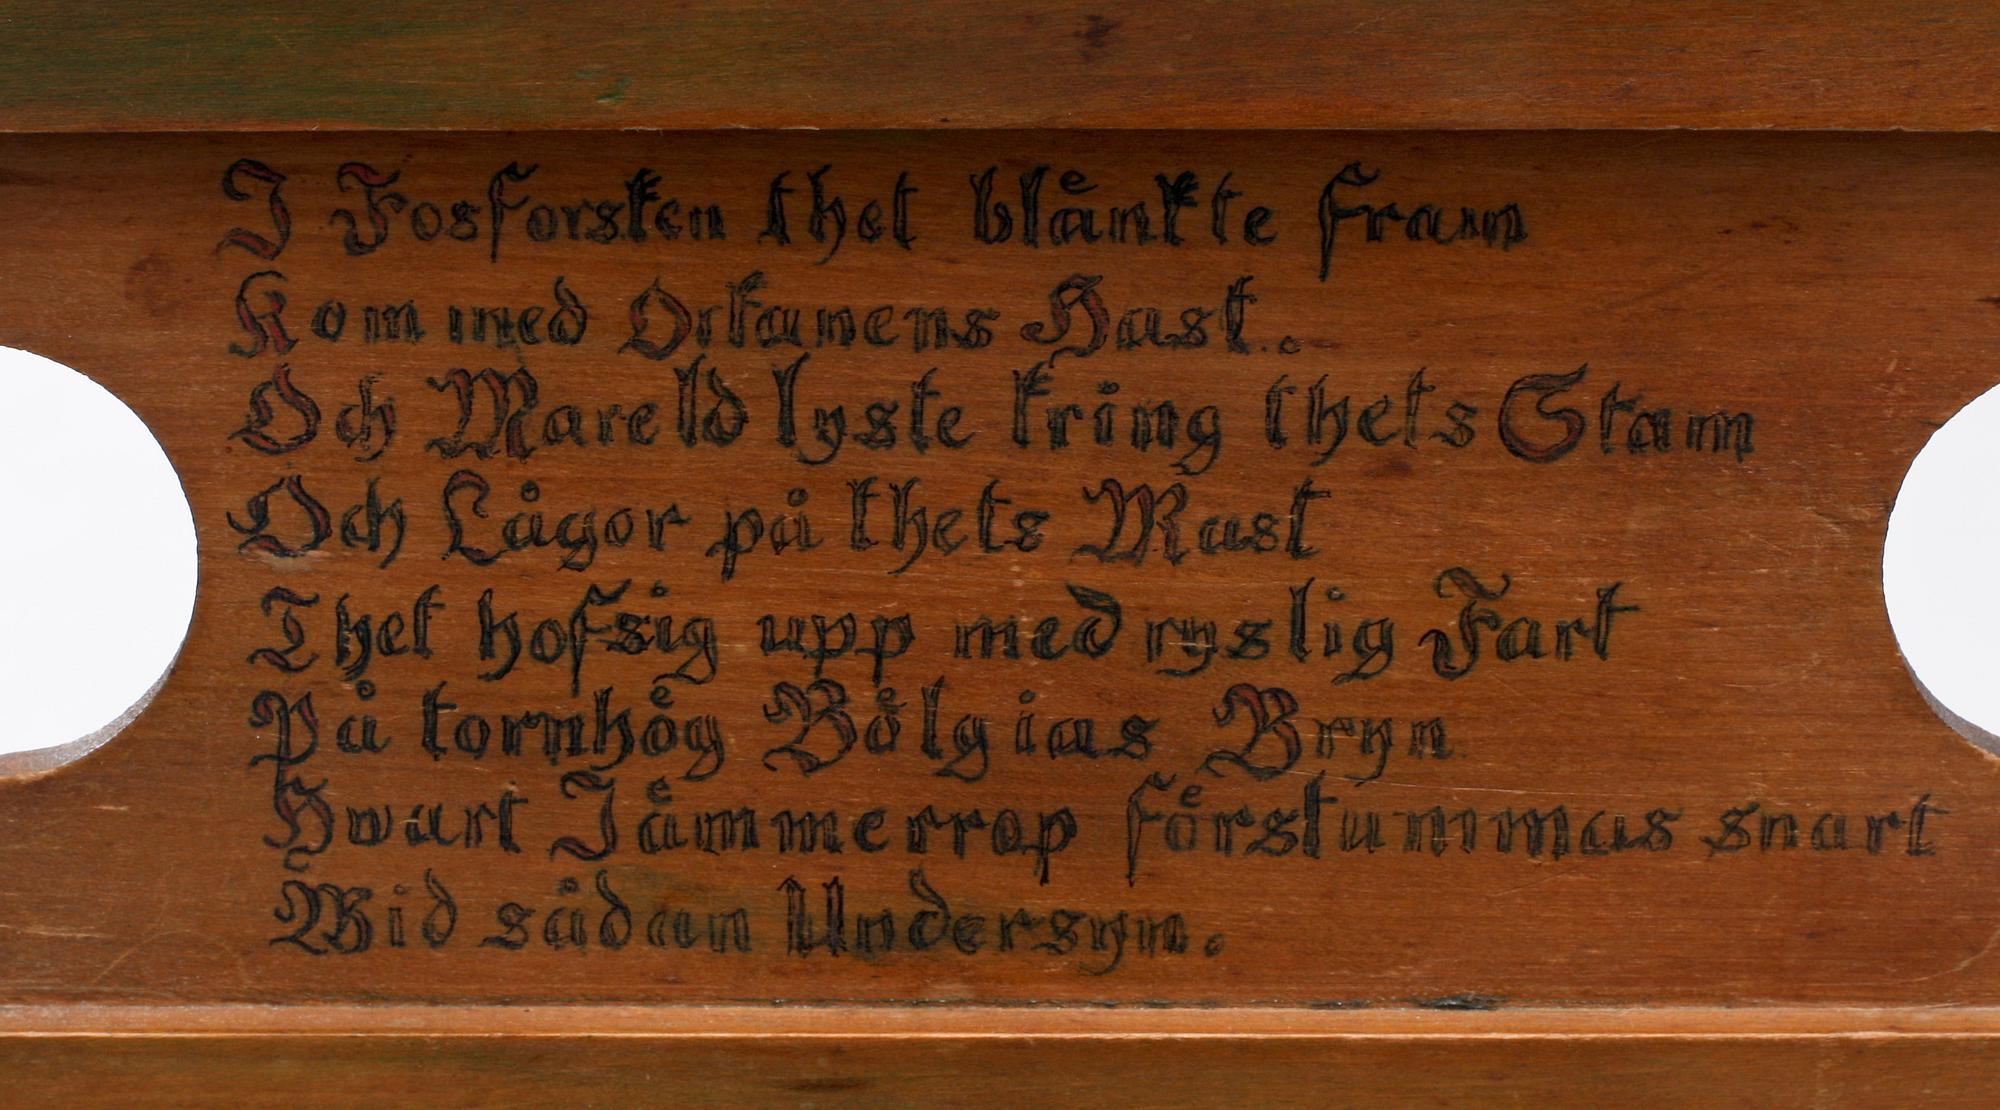 I Fosforsken thet blänkte fram
Kom med Orkanens Hast.
Och Mareld lyste kring thets Stam
Och Lågor på thets Mast
Thet hof sig upp med ryslig Fart
På tornhög Bölgias Bryn
Hwart Jämmerrop förstummas snart
Wid sådan Undersyn.